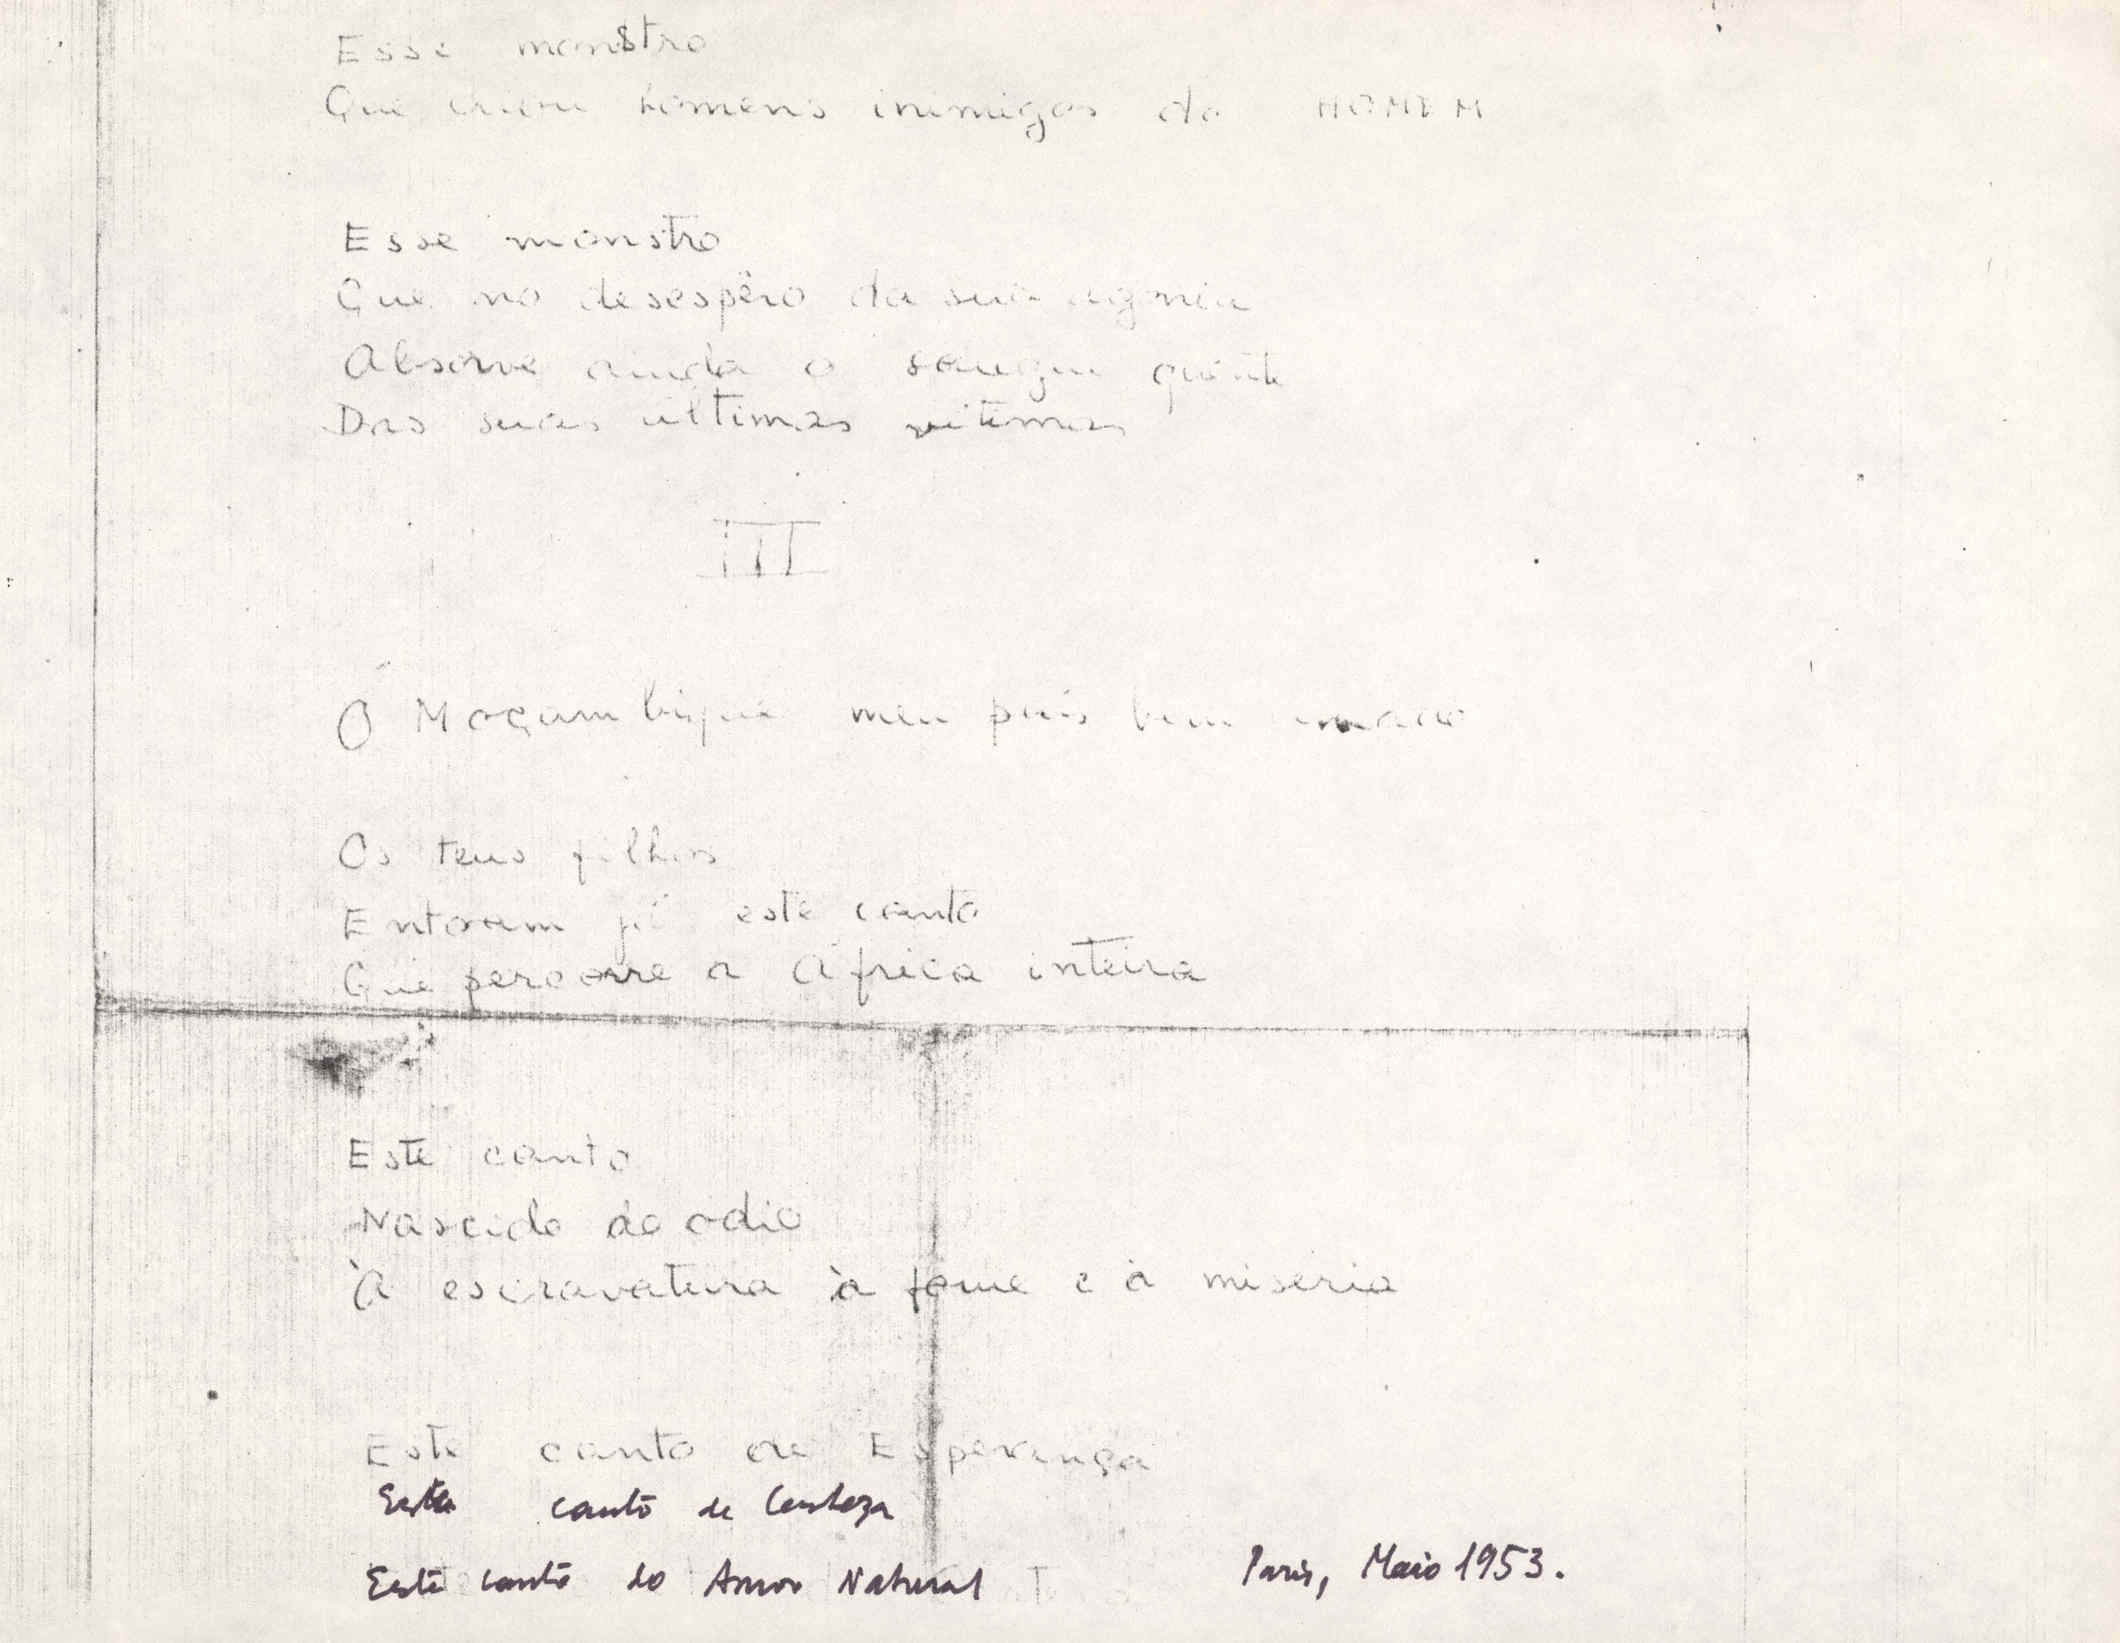 Esse monstro
Que criou homens inimigos do HOMEM
Esse monstro
Que no desespêro da sua agonia
Absorve ainda o sangue quente
Das suas ultimas vitimas
III
Ó Moçambique meu país bem amado
Os teus filhos
Entoam já este canto
Que percorre a África inteira
Este canto
Nascido do odio
À escravatura à fome e à miseria
Este canto de Esperança
Este canto de Certeza
Este canto do Amor Natural
Paris, Maio 1953.